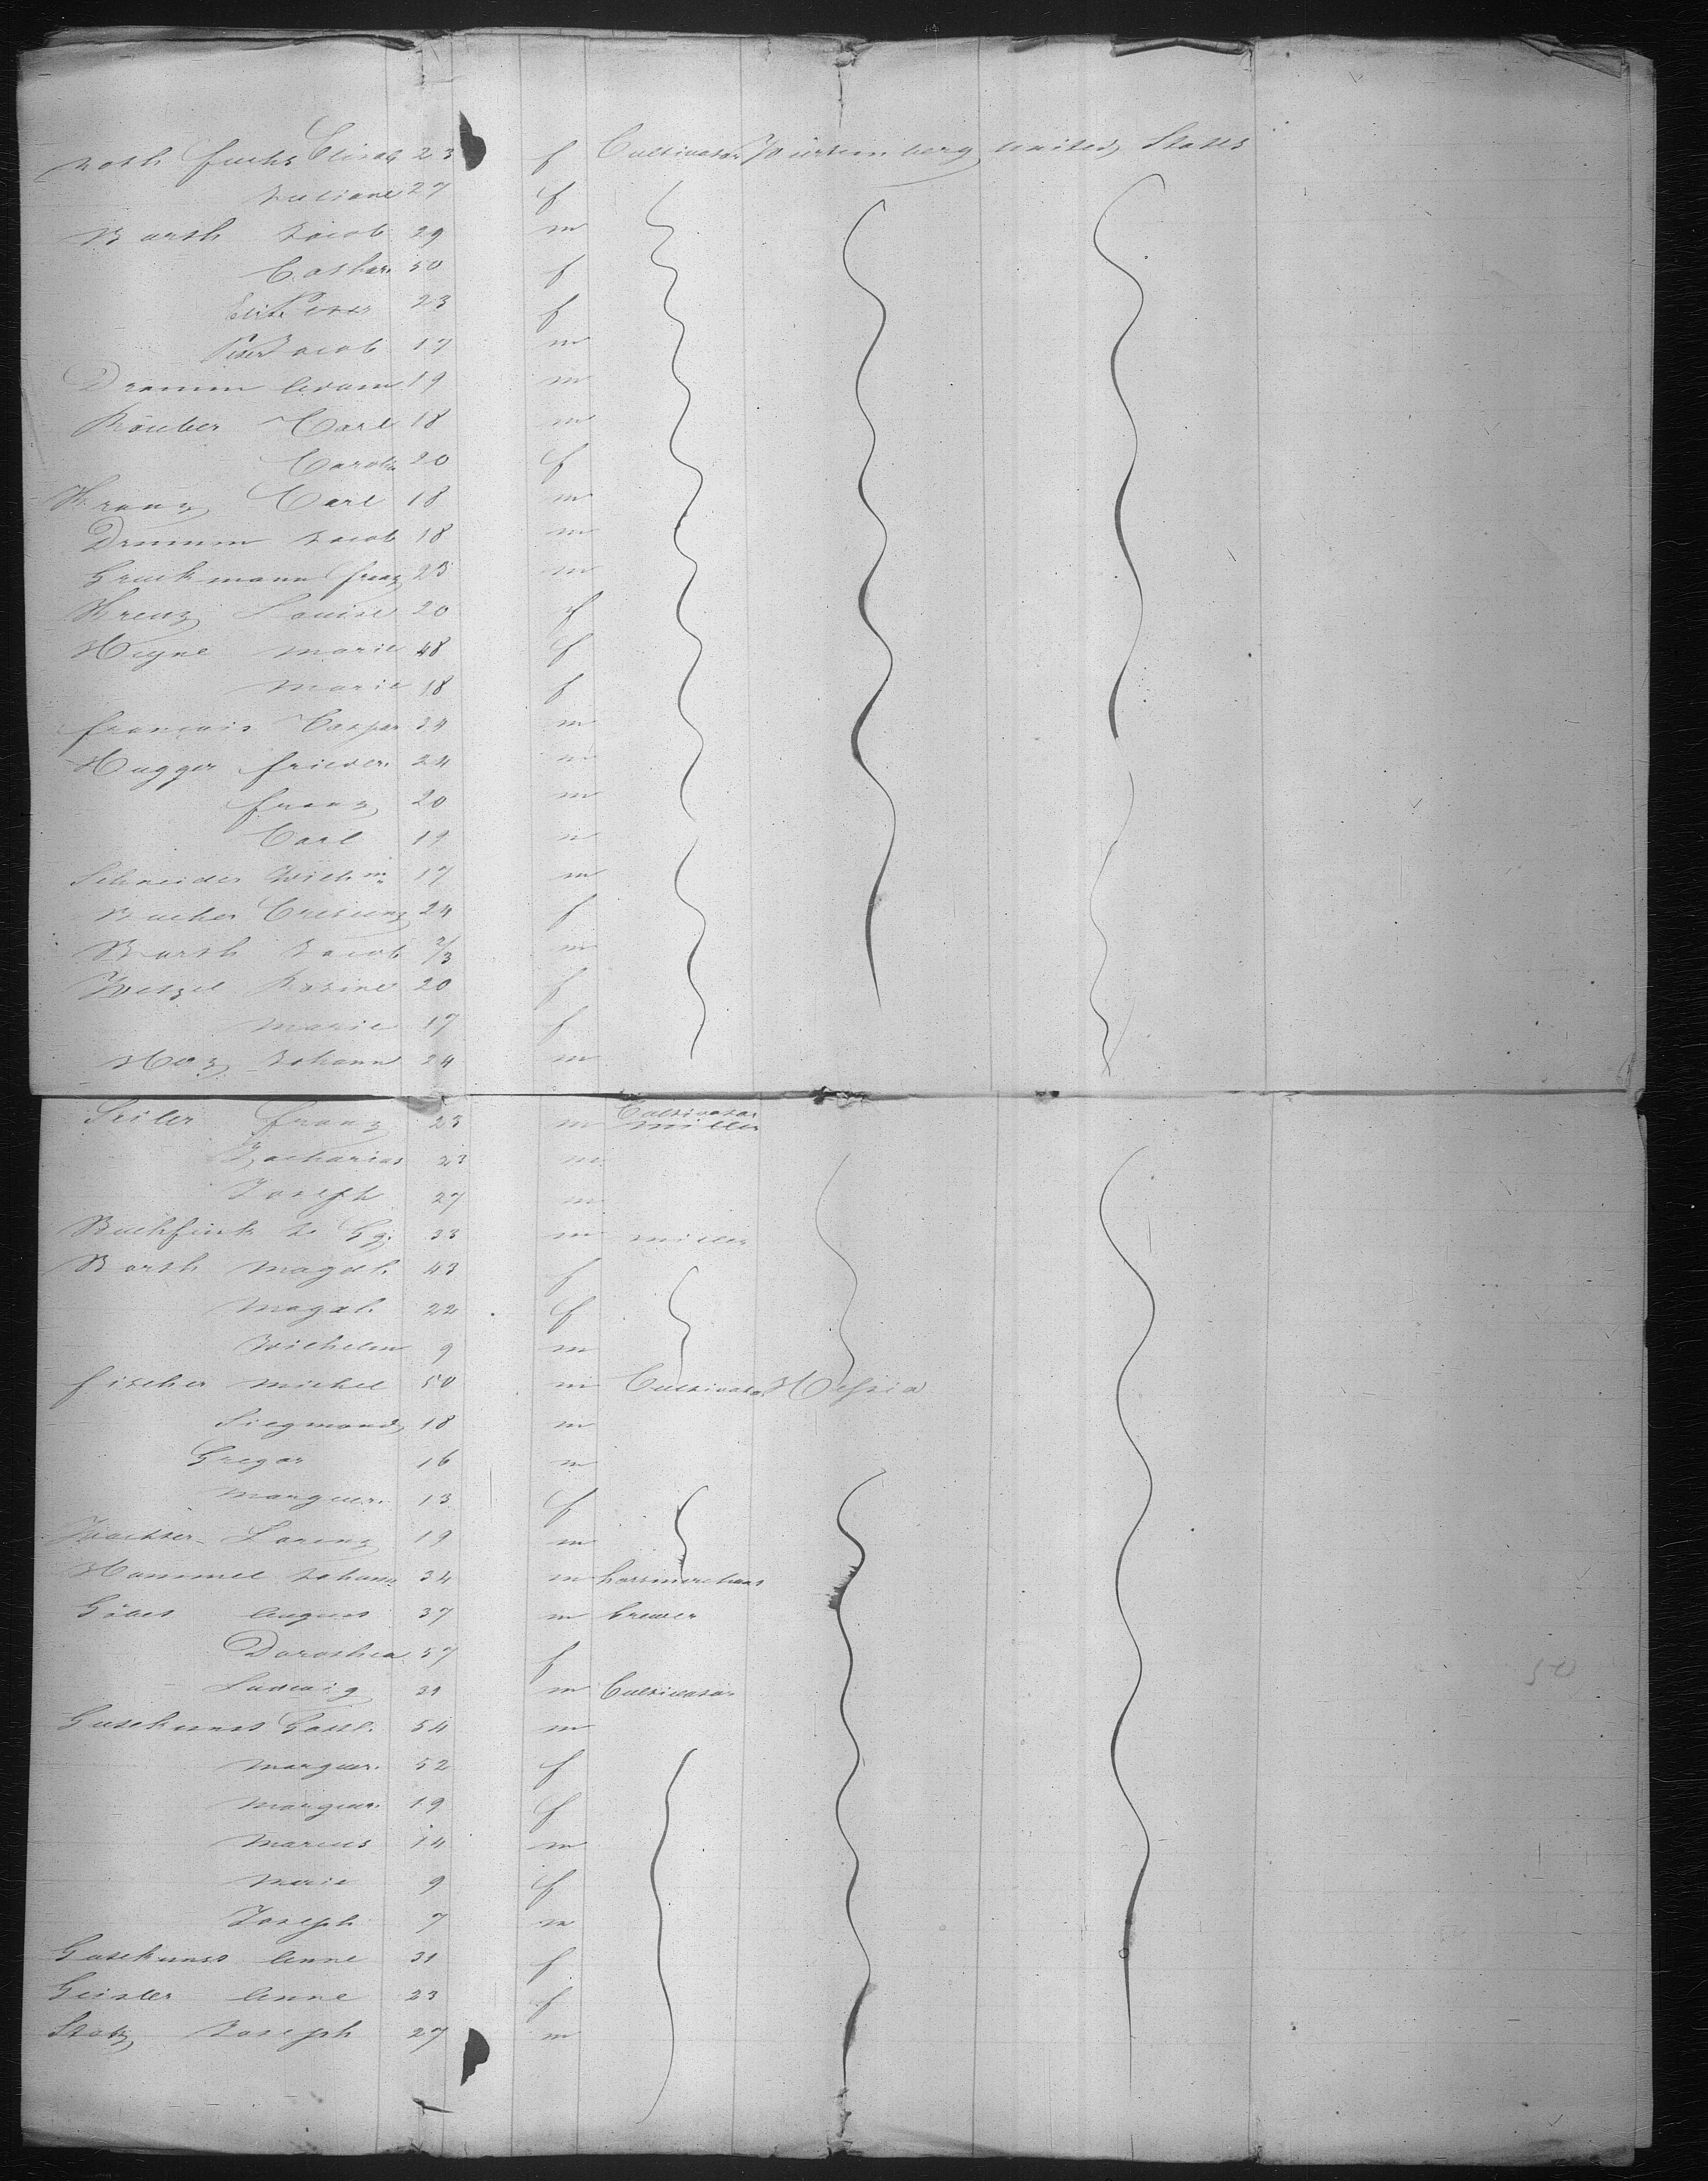 Roth fuchs Elisab 23 f Cultivator Würtemberg united States
Juliane 27 f
Barth Jacob 29 m
Cathar. 50 f
Elis Peter 23 f
Peter Jacob 17 m
Dramm Adam 19 m
Räuber Carl 18 m
Carolin 20 f
Kranz Carl 18 m
Drumm Jacob 18 m
Gruckmann franz 23 m
Kreuz Louise 20 f
Heyne Marie 48 f
Marie 18 f
francois Caspar 34 m
Hugger frieder. 24 m
franz 20 m
Carl 19 m
Schneider Wilhm 17 m
Bucher Cresienz 24 f
Barth Jacob 2/3 m
Wetzel Rosine 20 f
Marie 17 f
Hoz Johann 24 m
Seiler franz 23 m Cultivator miller
Zacharias 23 m
Joseph 27 m
Buchfink J. Gg. 33 m miller
Barth Magdl. 43 f
Magdl. 22 f
Wilhelm 9 m
fischer Michel 50 m Cultivator Hessia
Siegmond 18 m
Gregor 16 m
Marguer. 13 f
Wachter Lorenz 19 m
Hammel Johann 34 m horsmerchant
Göbel August 37 m brewer
Dorothea 57 f
Ludwig 31 m Cultivator
Gutekunst Gottl. 54 m
Marguer. 52 f
Marguer. 19 f
Marcus 14 m
Marie 9 f
Joseph 7 m
Gutekunst Anne 31 f
Geister Anne 23 f
Stotz Joseph 27 m
50